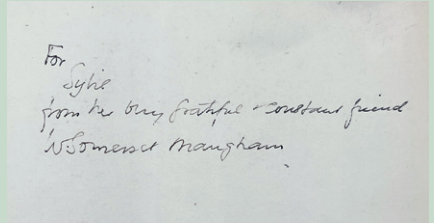 For
Sybil
from her very grateful & constant friend
W Somerset Maugham